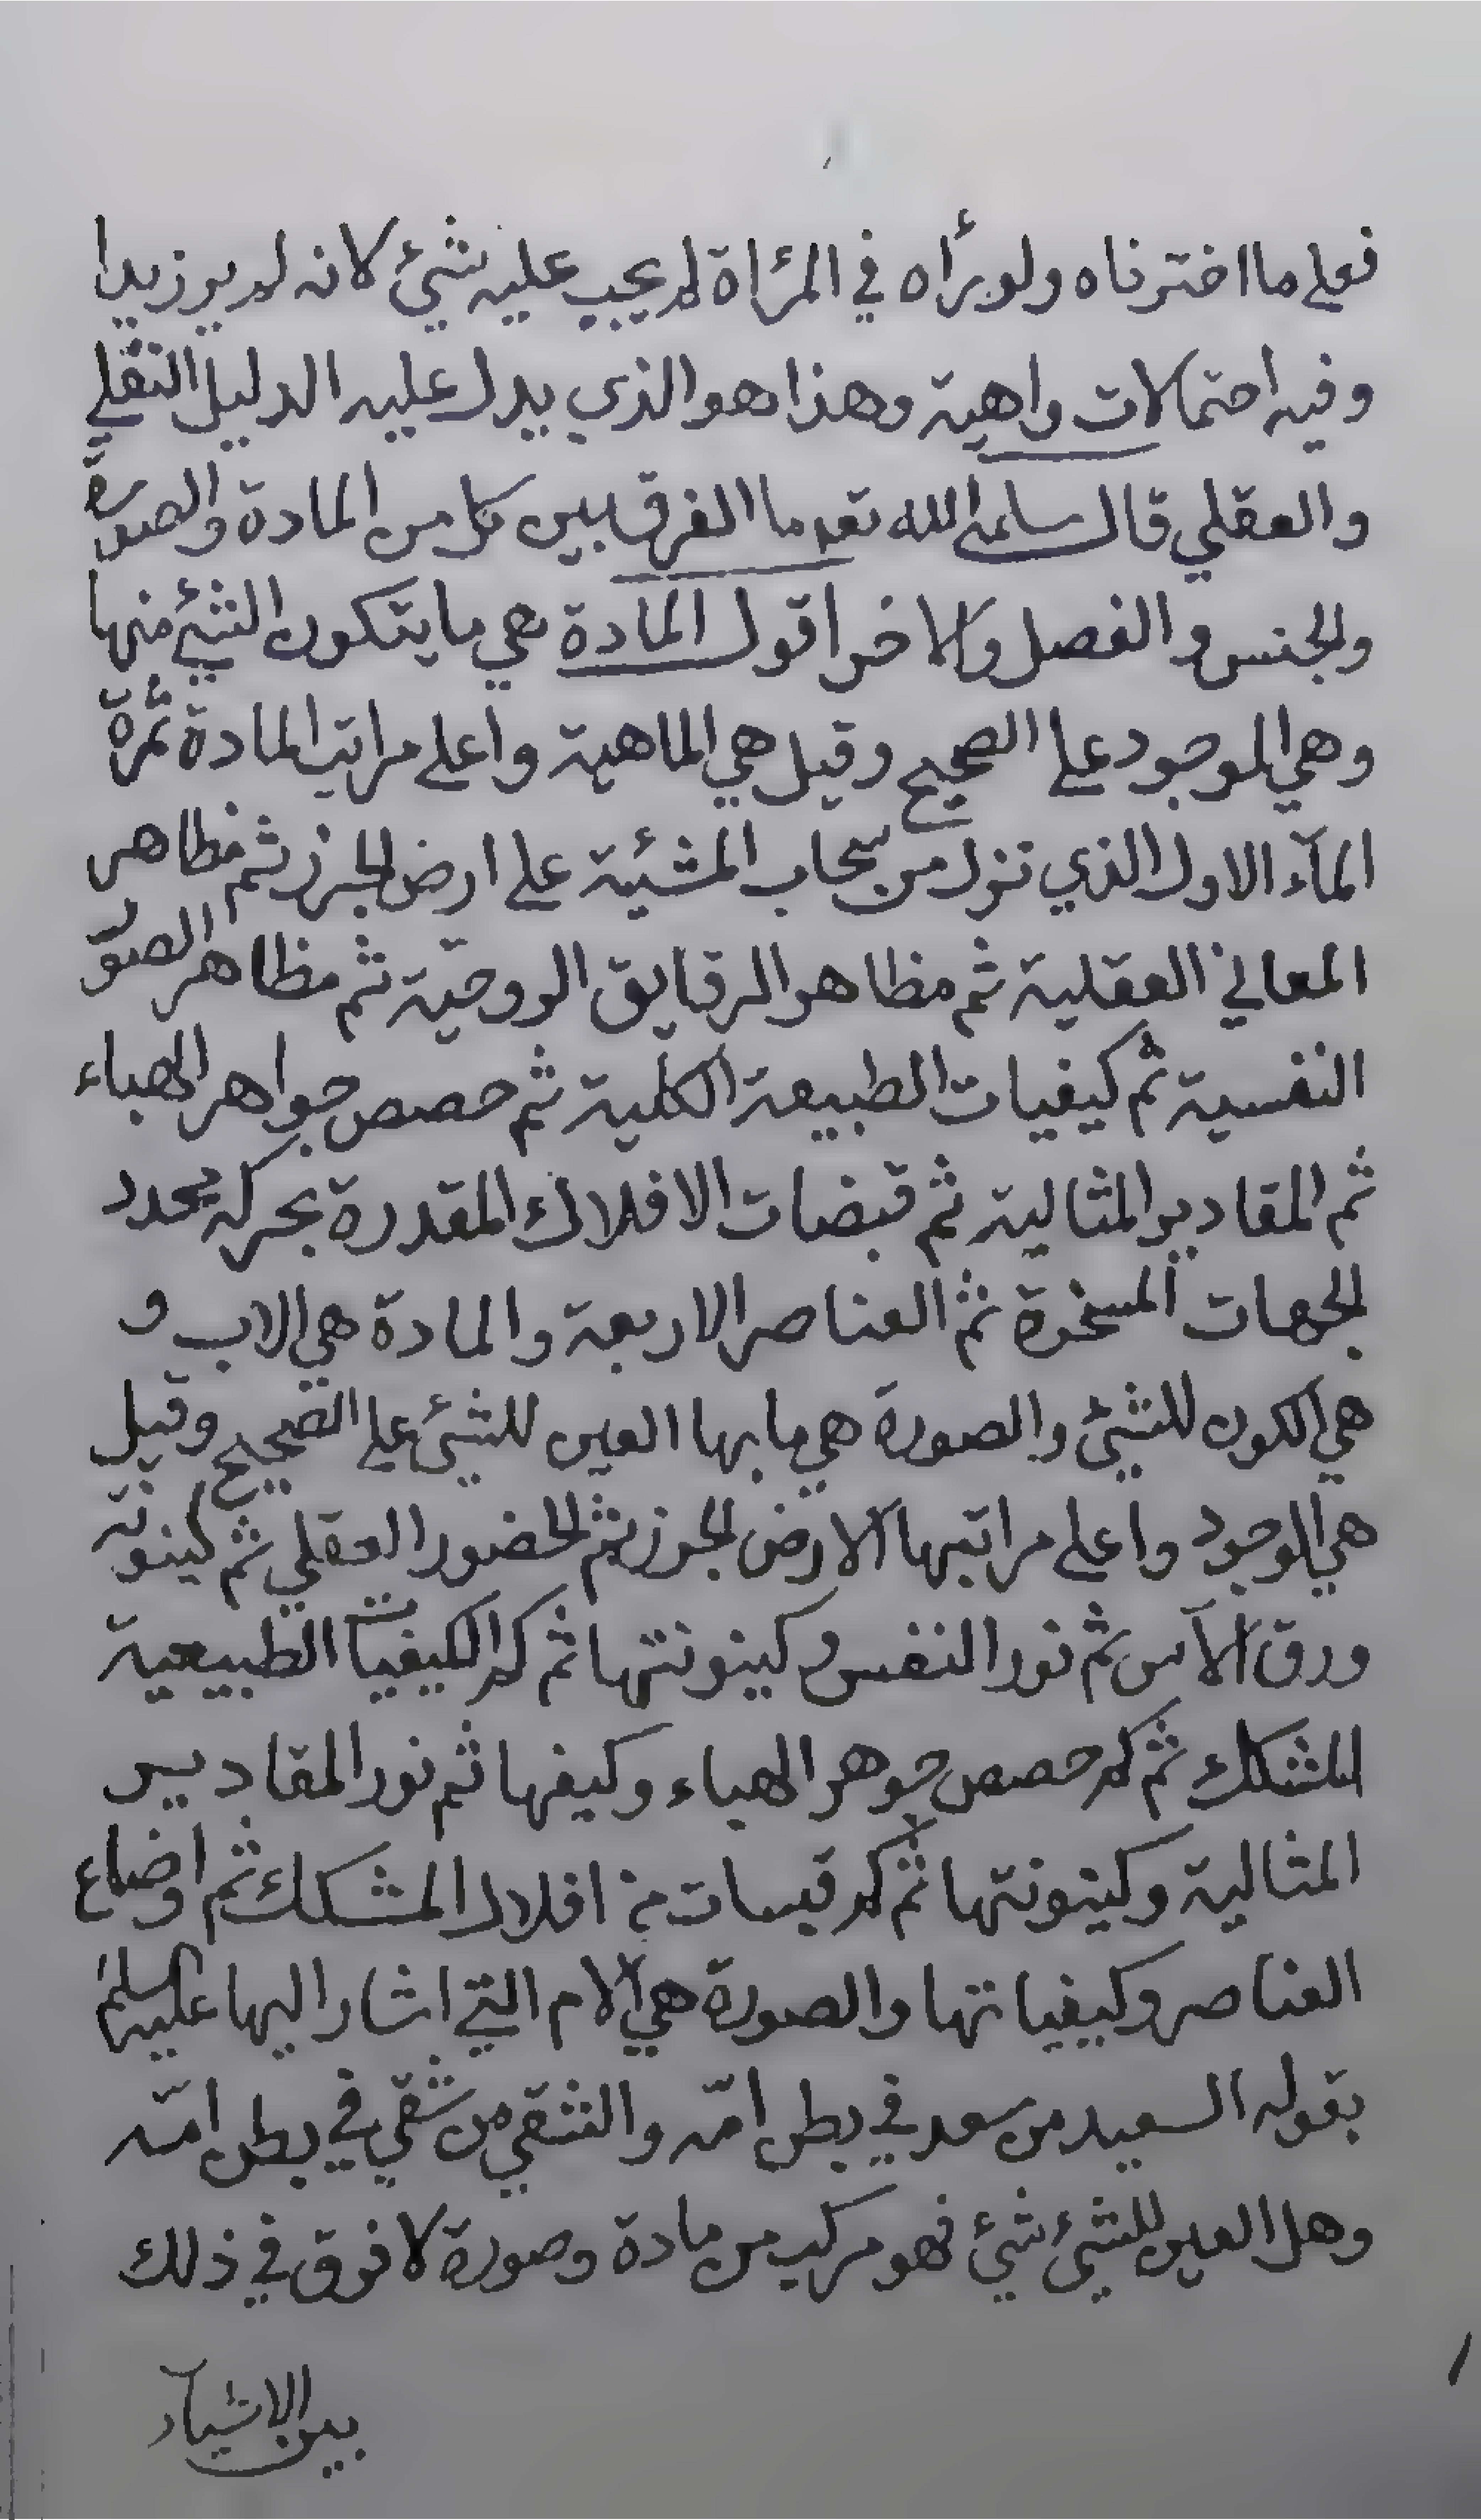 فعلى ما اخترناه ولو برأه في المرٔاة لم يجب عليه شئ لانه لم ير زيدا
وفيه احتمالات واهية وهذا هو الذي يدل عليه الدليل النقلي
والعقلي قال سلمه الله تعه ما الفرق بين كل من المادة والصورة
والجنس والفصل والاخر اقول المادة هي ما يتكون الشئ منها
وهي الموجود على الصحيح وقيل هي الماهية واعلى مراتب المادة ثمرة
المآء الاول الذي نزل من سحاب المشئية على ارض الجرز ثم مظاهر
المعاني العقلية ثم مظاهر الرقايق الروحية ثم مظاهر الصور
النفسية ثم كيفيات الطبيعة الكلية ثم حصص جواهر الهباء
ثم المقادير المثالية ثم قبضات الافلاك المقدرة بحركة محدد
الجهات المسخرة ثم العناصر الاربعة والمادة هي الاب و
هي الكون للشئ والصورة هي ما بها العين للشئ على الصحيح وقيل
هي الوجود واعلى مراتبها الارض الجرز ثم الحضور العقلي ثم كينونة
ورق الآس ثم نور النفس وكينونتها ثم كم الكيفيات الطبيعية
المشكك ثم كم حصص جوهر الهباء وكيفها ثم نور المقادير
المثالية وكينونتها ثم كم قبسات من افلاك المشكك ثم اوضاع
العناصر وكيفياتها والصورة هي الام التي اشار اليها عليه السلم
بقوله السعيد من سعد في بطن امّه والشقي من شقي في بطن امّه
وهل العين للشئ شئ فهو مركب من مادة وصورة لا فرق في ذلك
بين الاشيآء